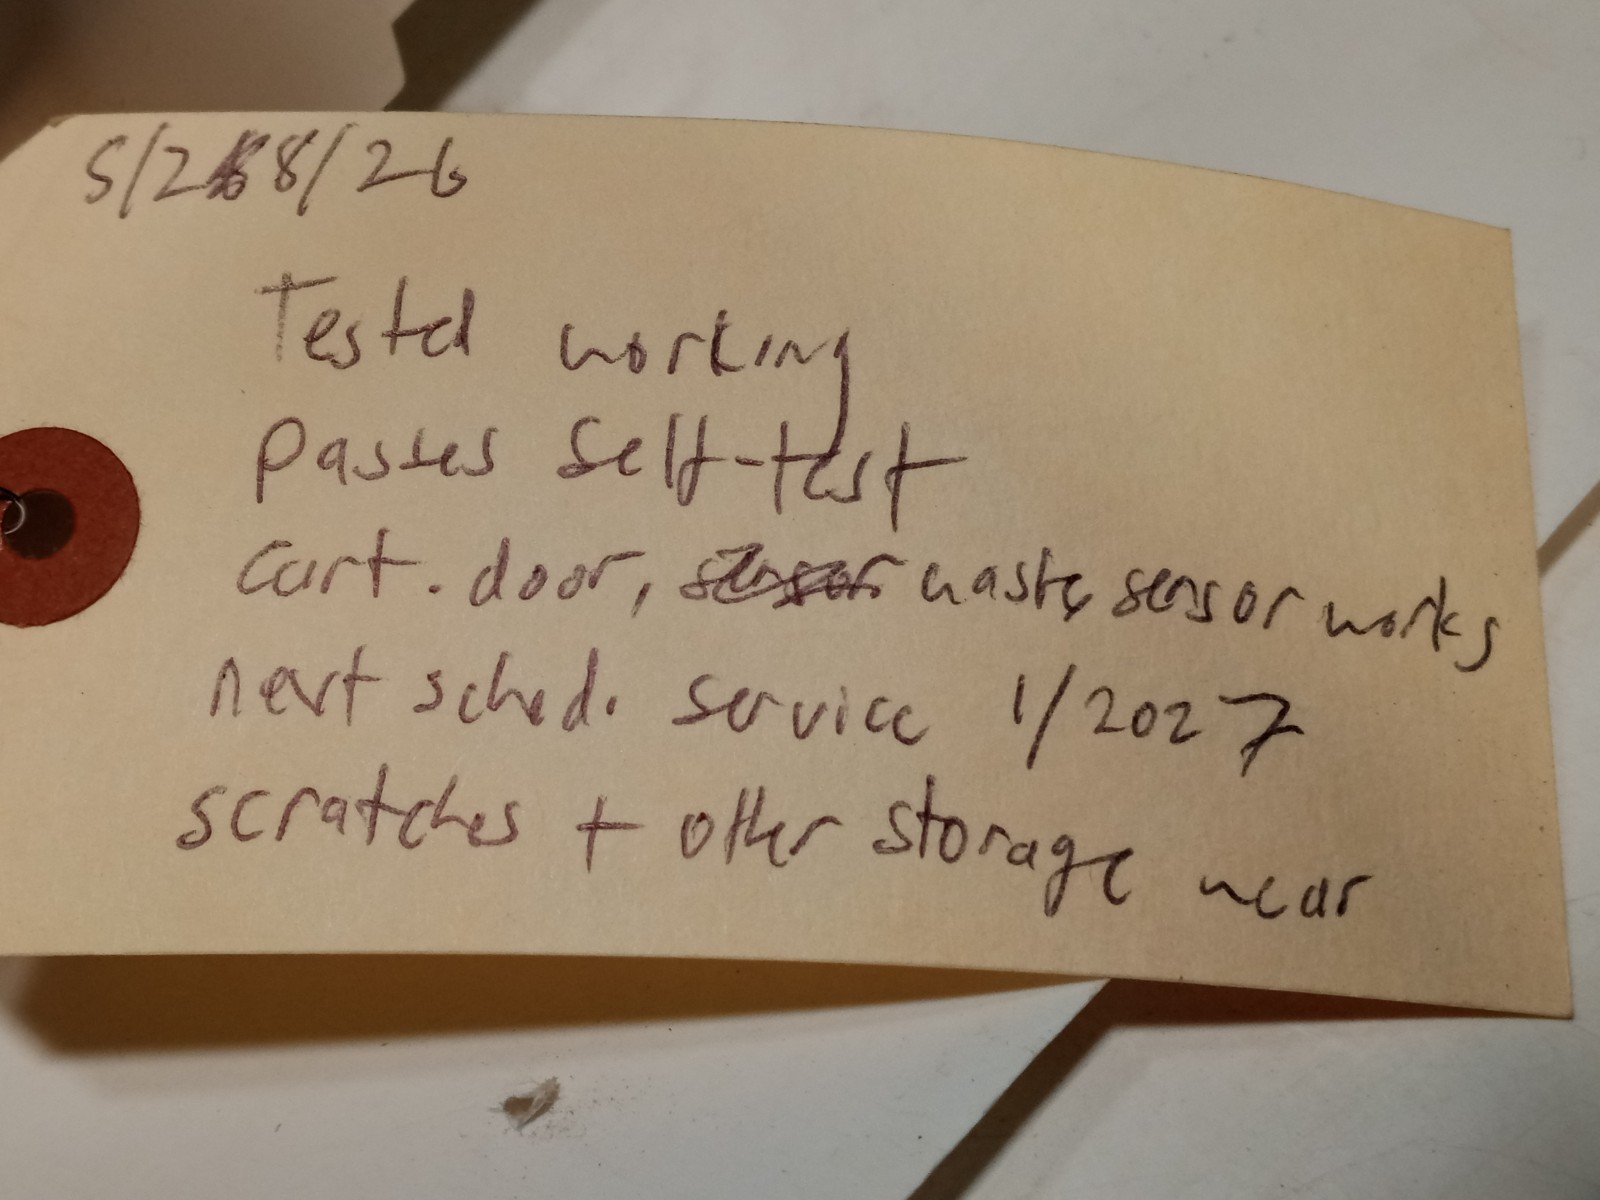 5/28/26
Tested working
passes self-test
cart. door, waste sensor works
next sched. service 1/2027
scratches + other storage wear